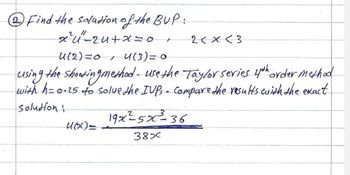 ② Find the solution of the BVP:
x²u''-2u+x=0 , 2<x<3
u(2)=0 , u(3)=0
using the shooting method - use the Taylor series 4th order method
with h=0.25 to solve the IVPs - Compare the results with the exact
solution:
u(x)= 19x²-5x³-36
38x